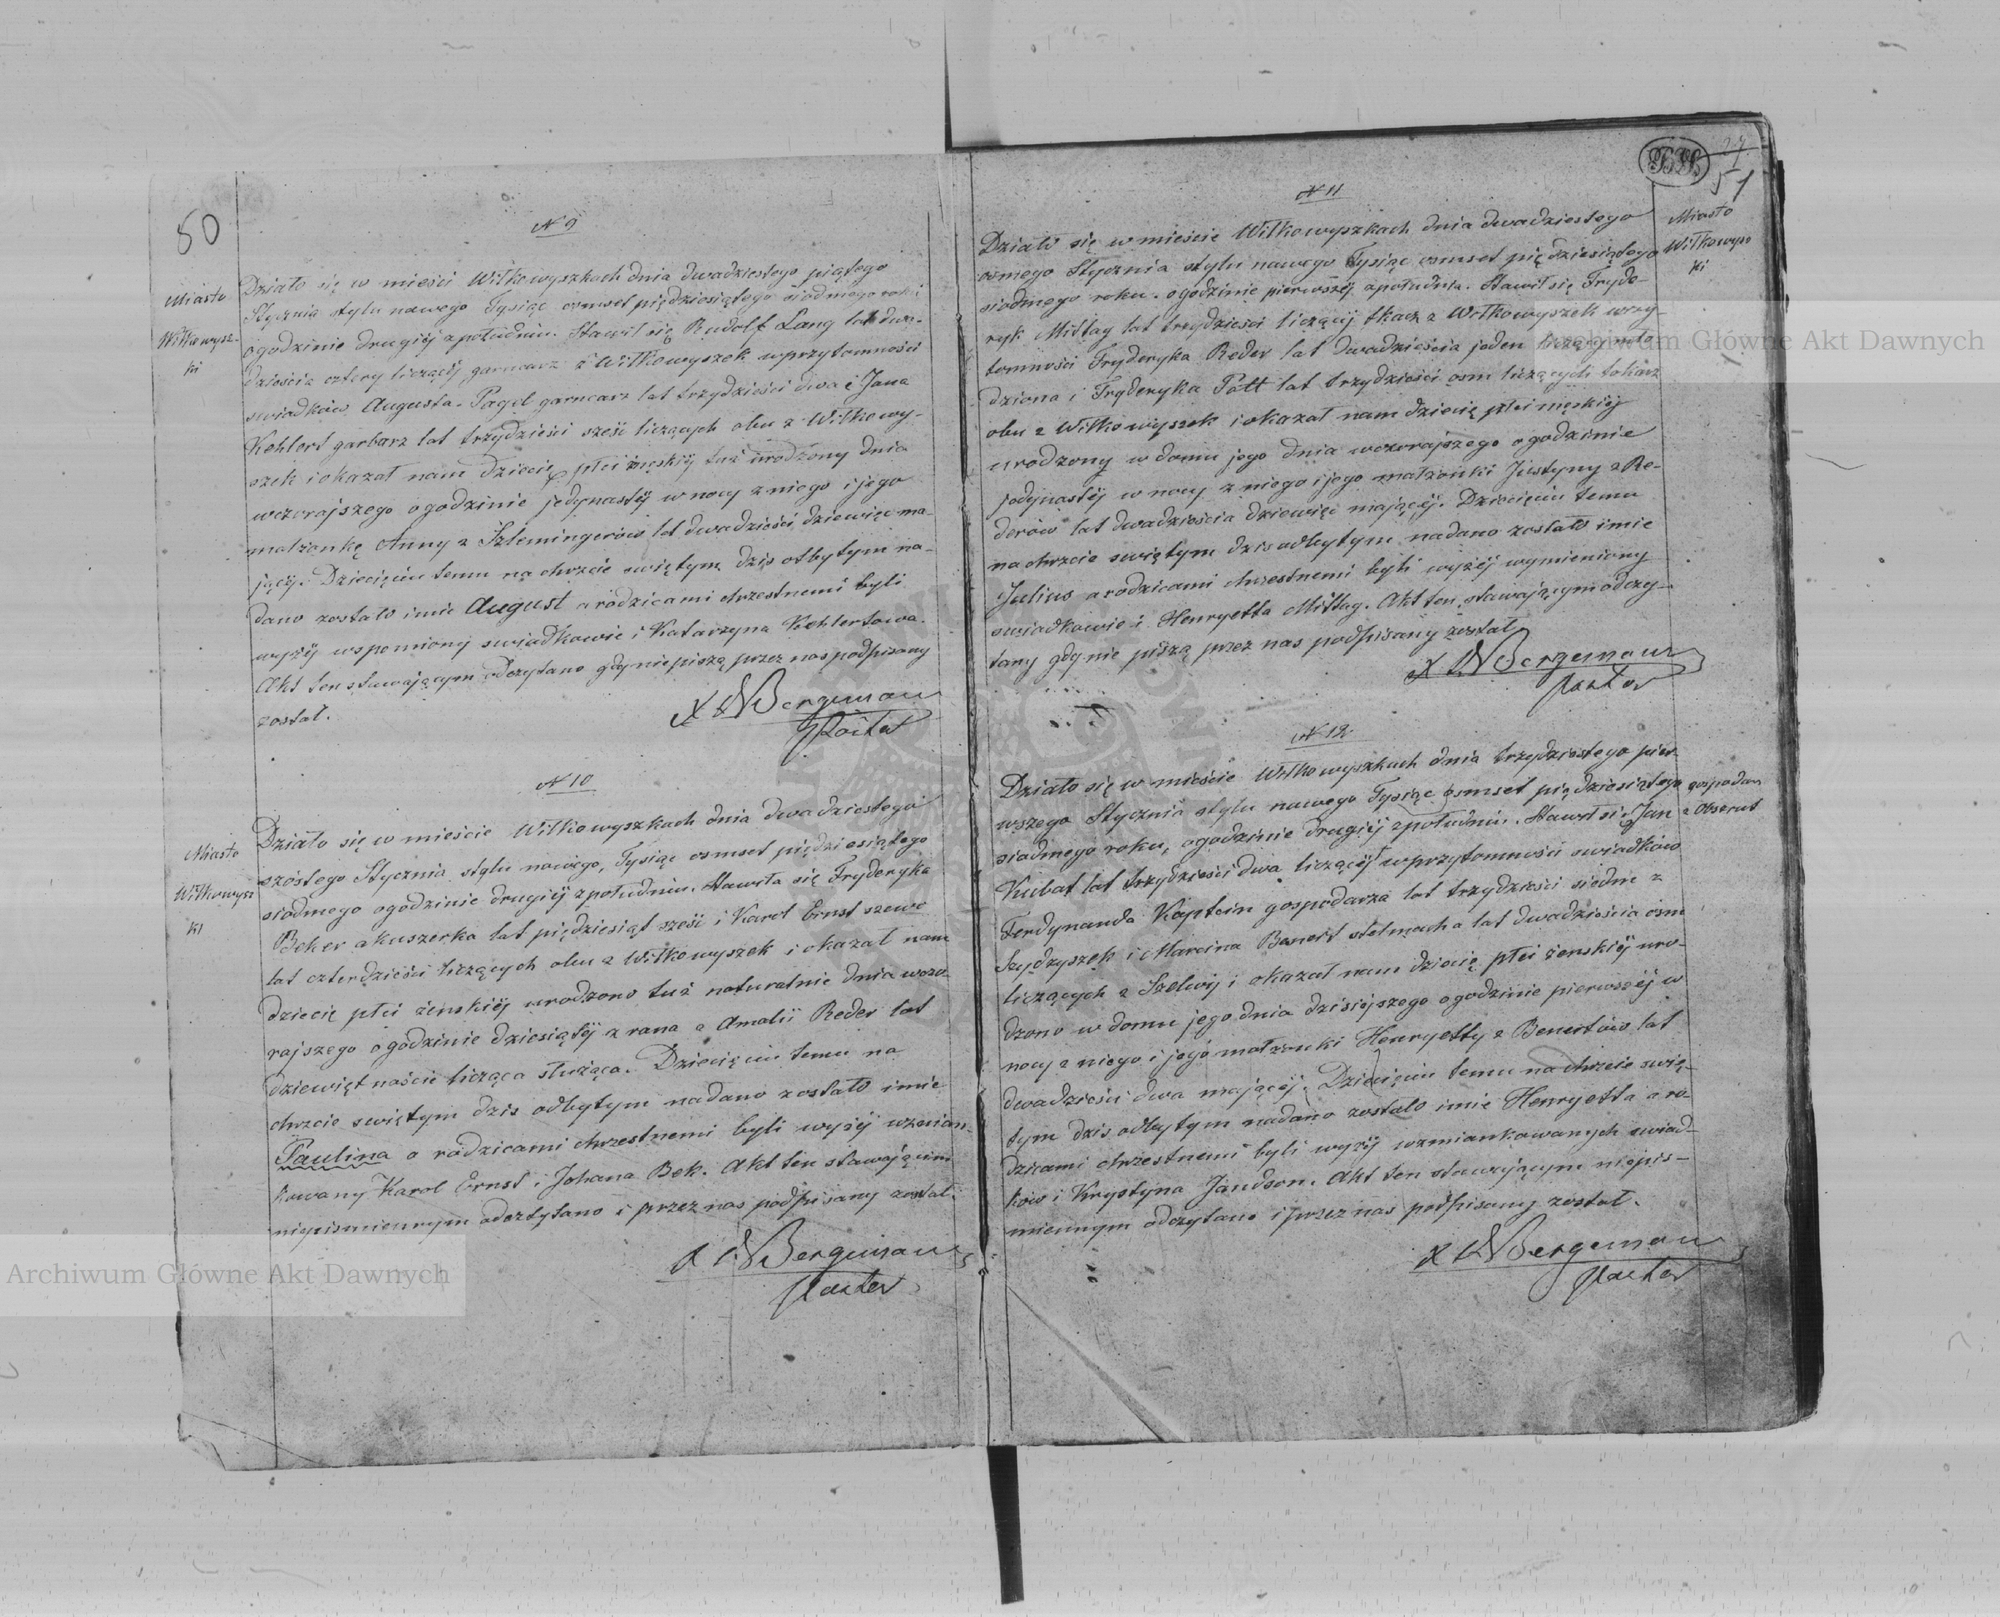 50
N 9
Miasto
Wiłkowysz-
ki
Działo się w mieści Wiłkowyszkach dnia dwadziestego piątego
Stycznia stylu nowego Tysiąc osmset pięćdziesiątego siodmego roku
o godzinie drugiéj z południu. Stawił się Rudolf Lang lat dwa-
dzieścia cztery liczącéj garncarz z Wiłkowyszek w przytomności
swiadków Augusta Pagel garncarz lat trzydzieści dwa i Jana
Kehlert garbarz lat trzydzieści sześć liczących obu z Wiłkowy-
szek i okazał nam dziecię płci męskiéj tuż urodzony dnia
wczorajszego o godzinie jedynastéj w nocy z niego i jego
małżonkę Anny z Szlemingerów lat dwadzieści dziewięc ma-
jącéj. Dziecięciu temu na chrzcie swiętym dzis odbytym na-
dano zostało imie August a rodzicami chrzestnemi byli
wyżéj wspomniony swiadkowie i Katarzyna Kehlertowa.
Akt ten stawającym odczytano gdy nie piszą przez nas podpisany
został.
X W Bergeman
Pastor
N 10
Miasto
Wiłkowysz
ki
Działo się w mieście Wiłkowyszkach dnia dwadziestego
szóstego Stycznia stylu nowégo, Tysiąc osmset pięćdziesiątego
siodmego o godzinie drugiéj z południu. Stawiła się Fryderyka
Beker akuszerka lat pięćdziesiąt sześć i Karol Ernst szewc
lat czterdzieści liczących obu z Wiłkowyszek i okazał nam
dziecię płci żeńskiéj urodzono tuż naturalnie dnia wczo-
rajszego o godzinie dziesiątéj z rana z Amalii Reder lat
dziewiętnaście licząca służąca. Dziecięciu temu na
chrzcie swiętym dzis odbytym nadano zostało imie
Paulina a rodzicami chrzestnemi byli wyżéj wzmian-
kowany Karol Ernst i Johana Bek. Akt ten stawającim
niepismiennym odcztytano i przez nas podpisany został.
X W Bergeman
Pastor
27
51
N 11
Miasto
Wiłkowysz
ki
Działo się w mieście Wiłkowyszkach dnia dwadziestego
osmego Stycznia stylu nowego Tysiąc osmset pięćdziesiątego
siodmego roku. o godzinie pierwszéj z południa. Stawił się Fryde-
ryk Mittag lat trzydzieści liczącéj tkacz z Wiłkowyszek w przy-
tomności Fryderyka Reder lat dwadzieścia jeden
i Fryderyka Pott lat trzydzieści osm liczących tokarz
obu z Wiłkowyszek i okazał nam dziecię płci męskiéj
urodzony w domu jego dnia wczorajszego o godzinie
jedynastéj w nocy z niego i jego małżonki Justyny z Re-
derów lat dwadzieścia dziewięć mającéj. Dziecięciu temu
na chrzcie swiętym dzis odbytym nadano zostało imie
Julius a rodzicami chrzestnemi byli wyżéj wymieniony
swiadkowie i Henryetta Mittag. Akt ten stawającym odczy-
tany gdy nie piszą przez nas podpisany został
X W Bergeman
Pastor
N 12
Działo się w mieście Wiłkowyszkach dnia trzydziestego pier-
wszego Stycznia stylu nowego Tysiąc osmset pięćdziesiątego
siodmego roku, o godzinie drugiéj z południu. Stawił się Jan
gospodarz
z Obszrut
Kubat lat trzydzieści dwa liczącéj w przytomności swiadków
Ferdynanda Kaptein gospodarza lat trzydzieści siedm z
Szydzyszek i Marcina Benert stelmacha lat dwadzieścia osm
liczących z Szelwij i okazał nam dziecię płci żenskiéj uro-
dzono w domu jego dnia dzisiéjszego o godzinie pierwszéj w
nocy z niego i jego małżonki Henryetty z Benertów lat
dwadzieści dwa mającéj. Dziecięciu temu na chrzcie swię-
tym dzis odbytym nadano zostało imie Henryetta a ro-
dzicami chrzestnemi byli wyżéj wzmiankowanych swiad-
ków i Krystyna Jandson. Akt ten stawającym niepis-
miennym odczytano i przez nas podpisany został.
X W Bergeman
Pastor
Archiwum Główne Akt Dawnych
Archiwum Główne Akt Dawnych